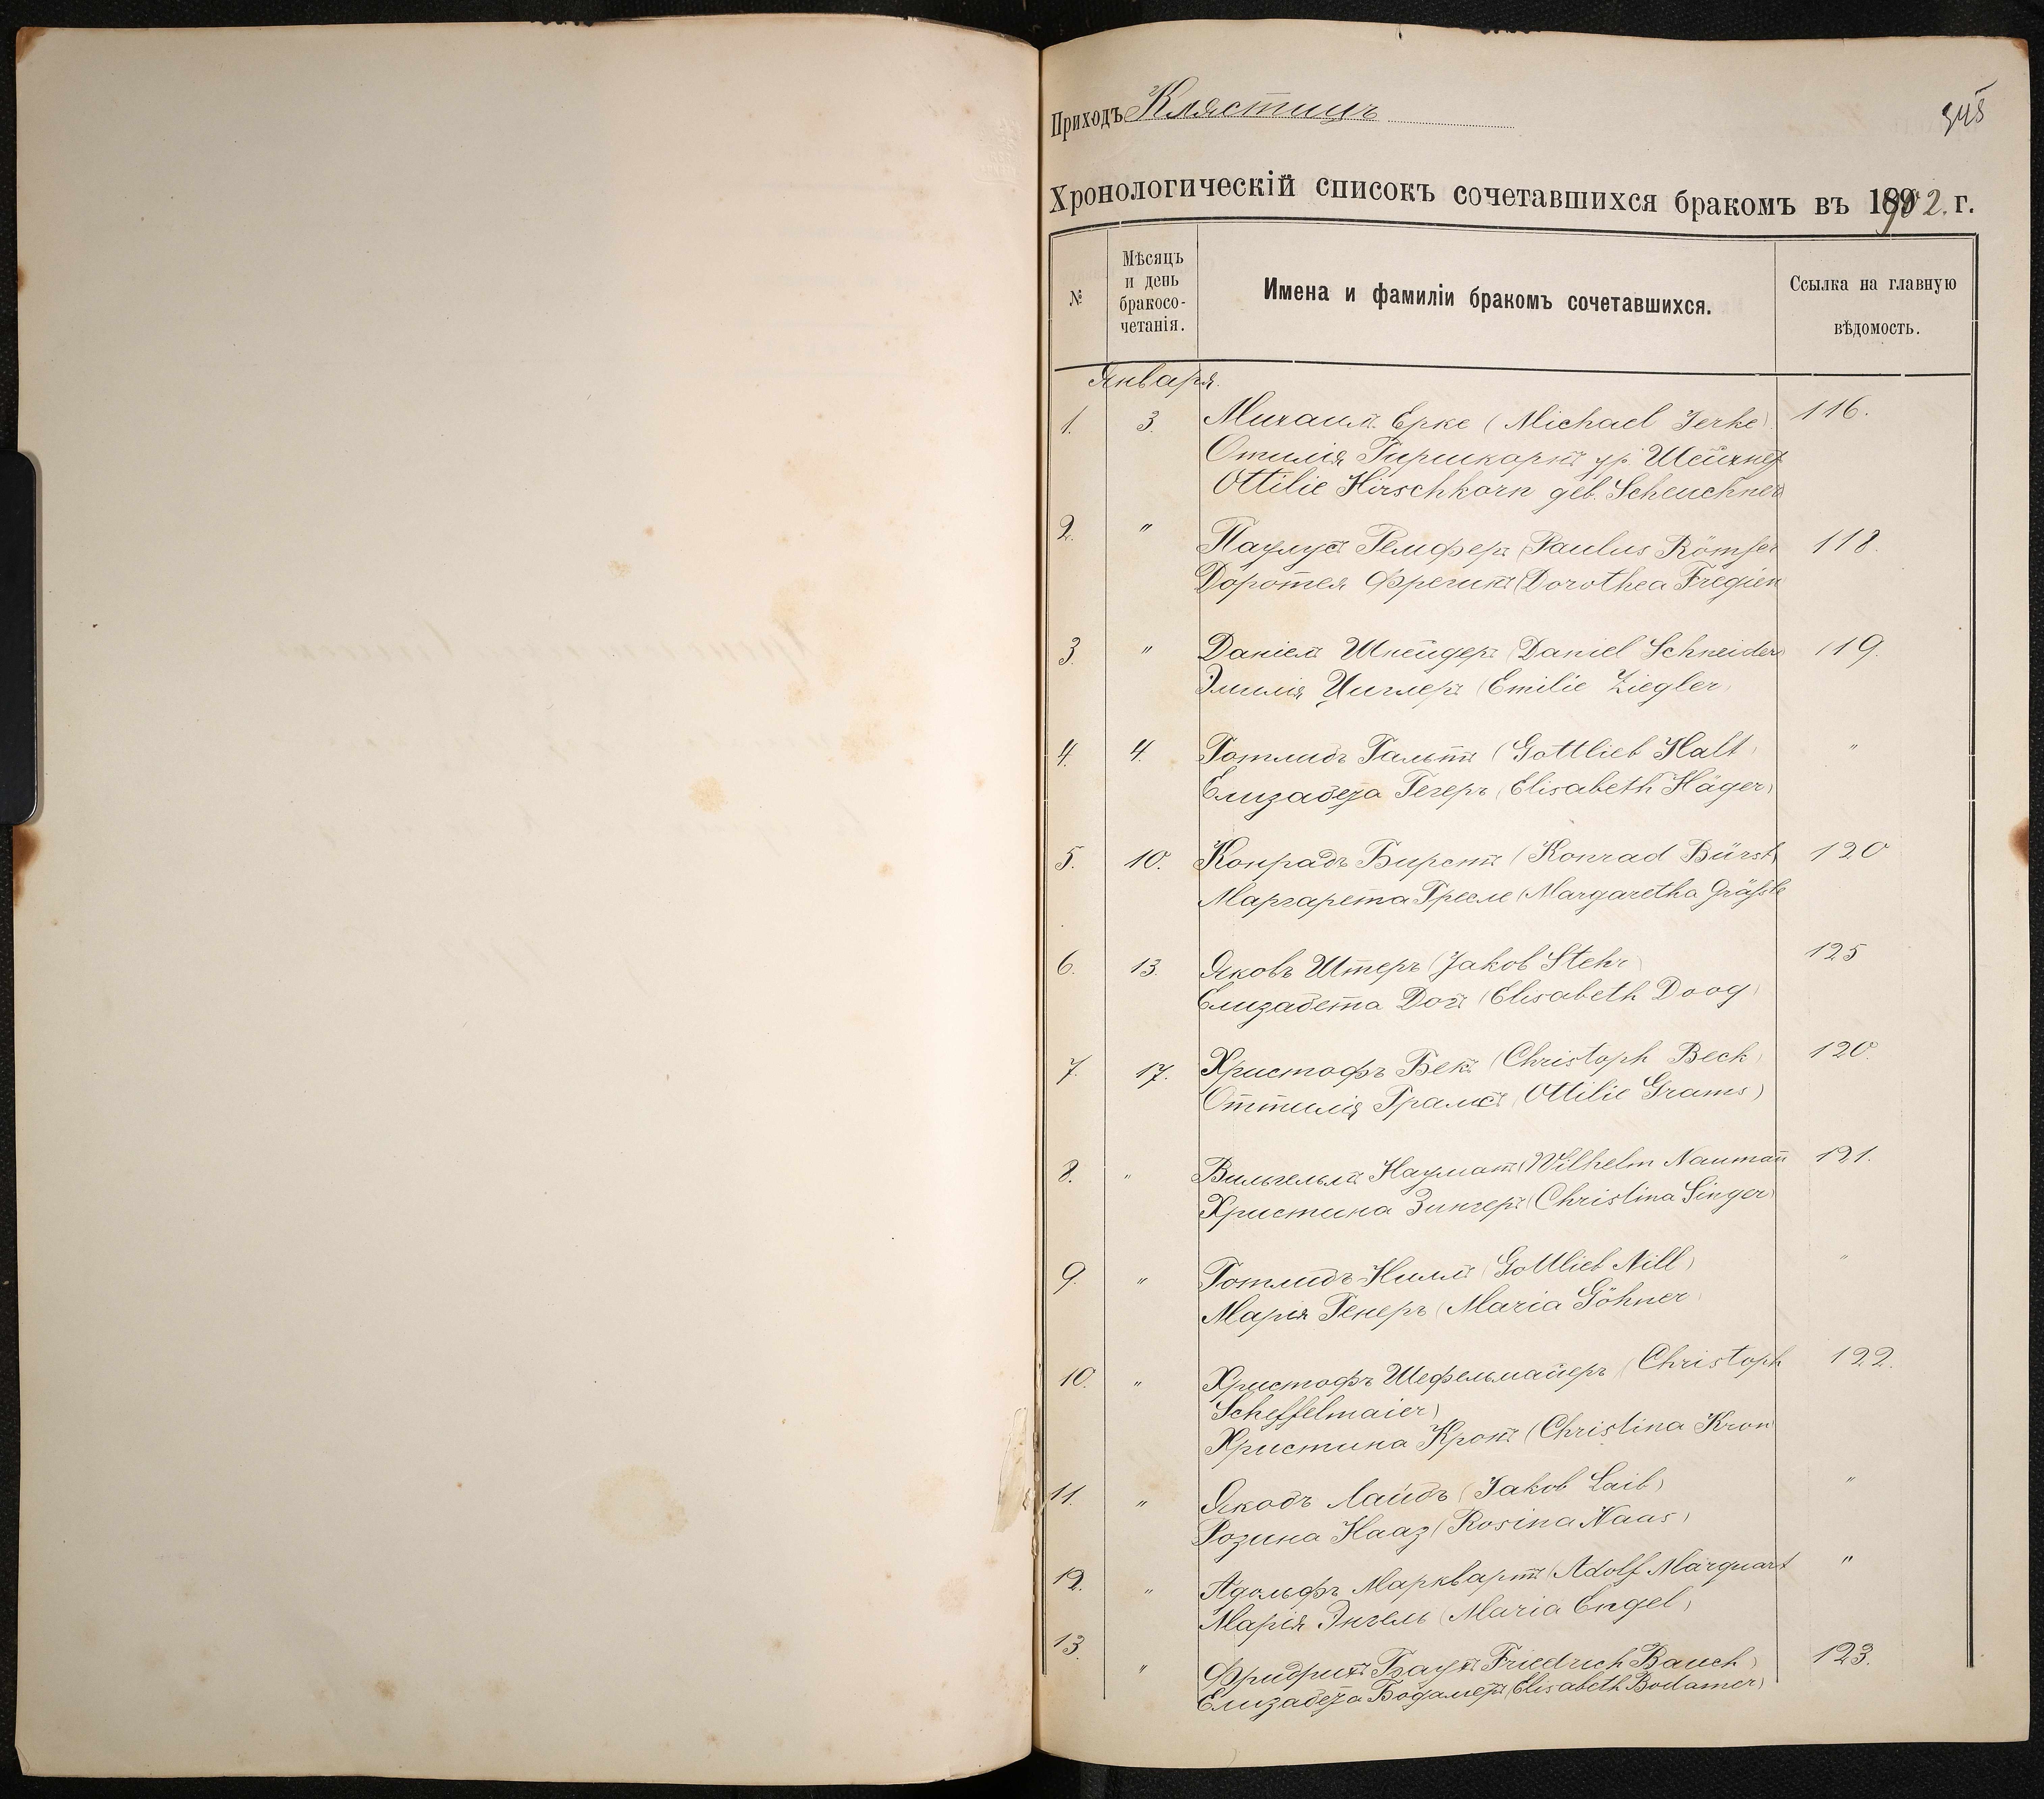 Приходъ Клястицъ
345
Хронологическій списокъ сочетавшихся бракомъ въ 1902. г.
№
Мѣсяцъ
и день
бракосо-
четанія.
Имена и фамиліи бракомъ сочетавшихся.
Ссылка на главную
вѣдомость.
Января.
1. 3. Михаилъ Ерке (Michael Jerke) 116.
Отилія Гиршкорнъ ур. Шейхнер
Ottilie Hirschkorn geb. Scheuchner
2. " Паулусъ Ремферъ (Paulus Römfer 118.
Доротея Фрегинъ (Dorothea Fregien
3. " Даніелъ Шнейдеръ (Daniel Schneider) 119.
Эмилія Циглеръ (Emilie Ziegler)
4. 4. Готлибъ Гальтъ (Gottlieb Halt) "
Елизабета Гегеръ (Elisabeth Häger)
5. 10. Конрадъ Бирстъ (Konrad Bürst) 120
Маргарета Гресле (Margaretha Gräßle
6. 13. Яковъ Штеръ (Jakob Stehr) 125
Елизабета Догъ (Elisabeth Doog)
7. 17. Христофъ Бекъ (Christoph Beck) 120.
Оттилія Грамсъ (Ottilie Grams)
8. " Вильгельмъ Науманъ (Wilhelm Naumañ 121.
Христина Зингеръ (Christina Singer)
9. " Готлибъ Нилль (Gottlieb Nill) "
Марія Генеръ (Maria Göhner)
10. " Христофъ Шефельмайеръ (Christoph 122.
Scheffelmaier)
Христина Кронъ (Christina Kron
11. " Якобъ Лайбъ (Jakob Laib) "
Розина Нааз (Rosina Naas)
12. " Адольфъ Марквартъ (Adolf Marquart "
Марія Энгель (Maria Engel)
13. " Фридрихъ Баухъ Friedrich Bauch) 123.
Елизабета Бодамеръ (Elisabeth Bodamer)